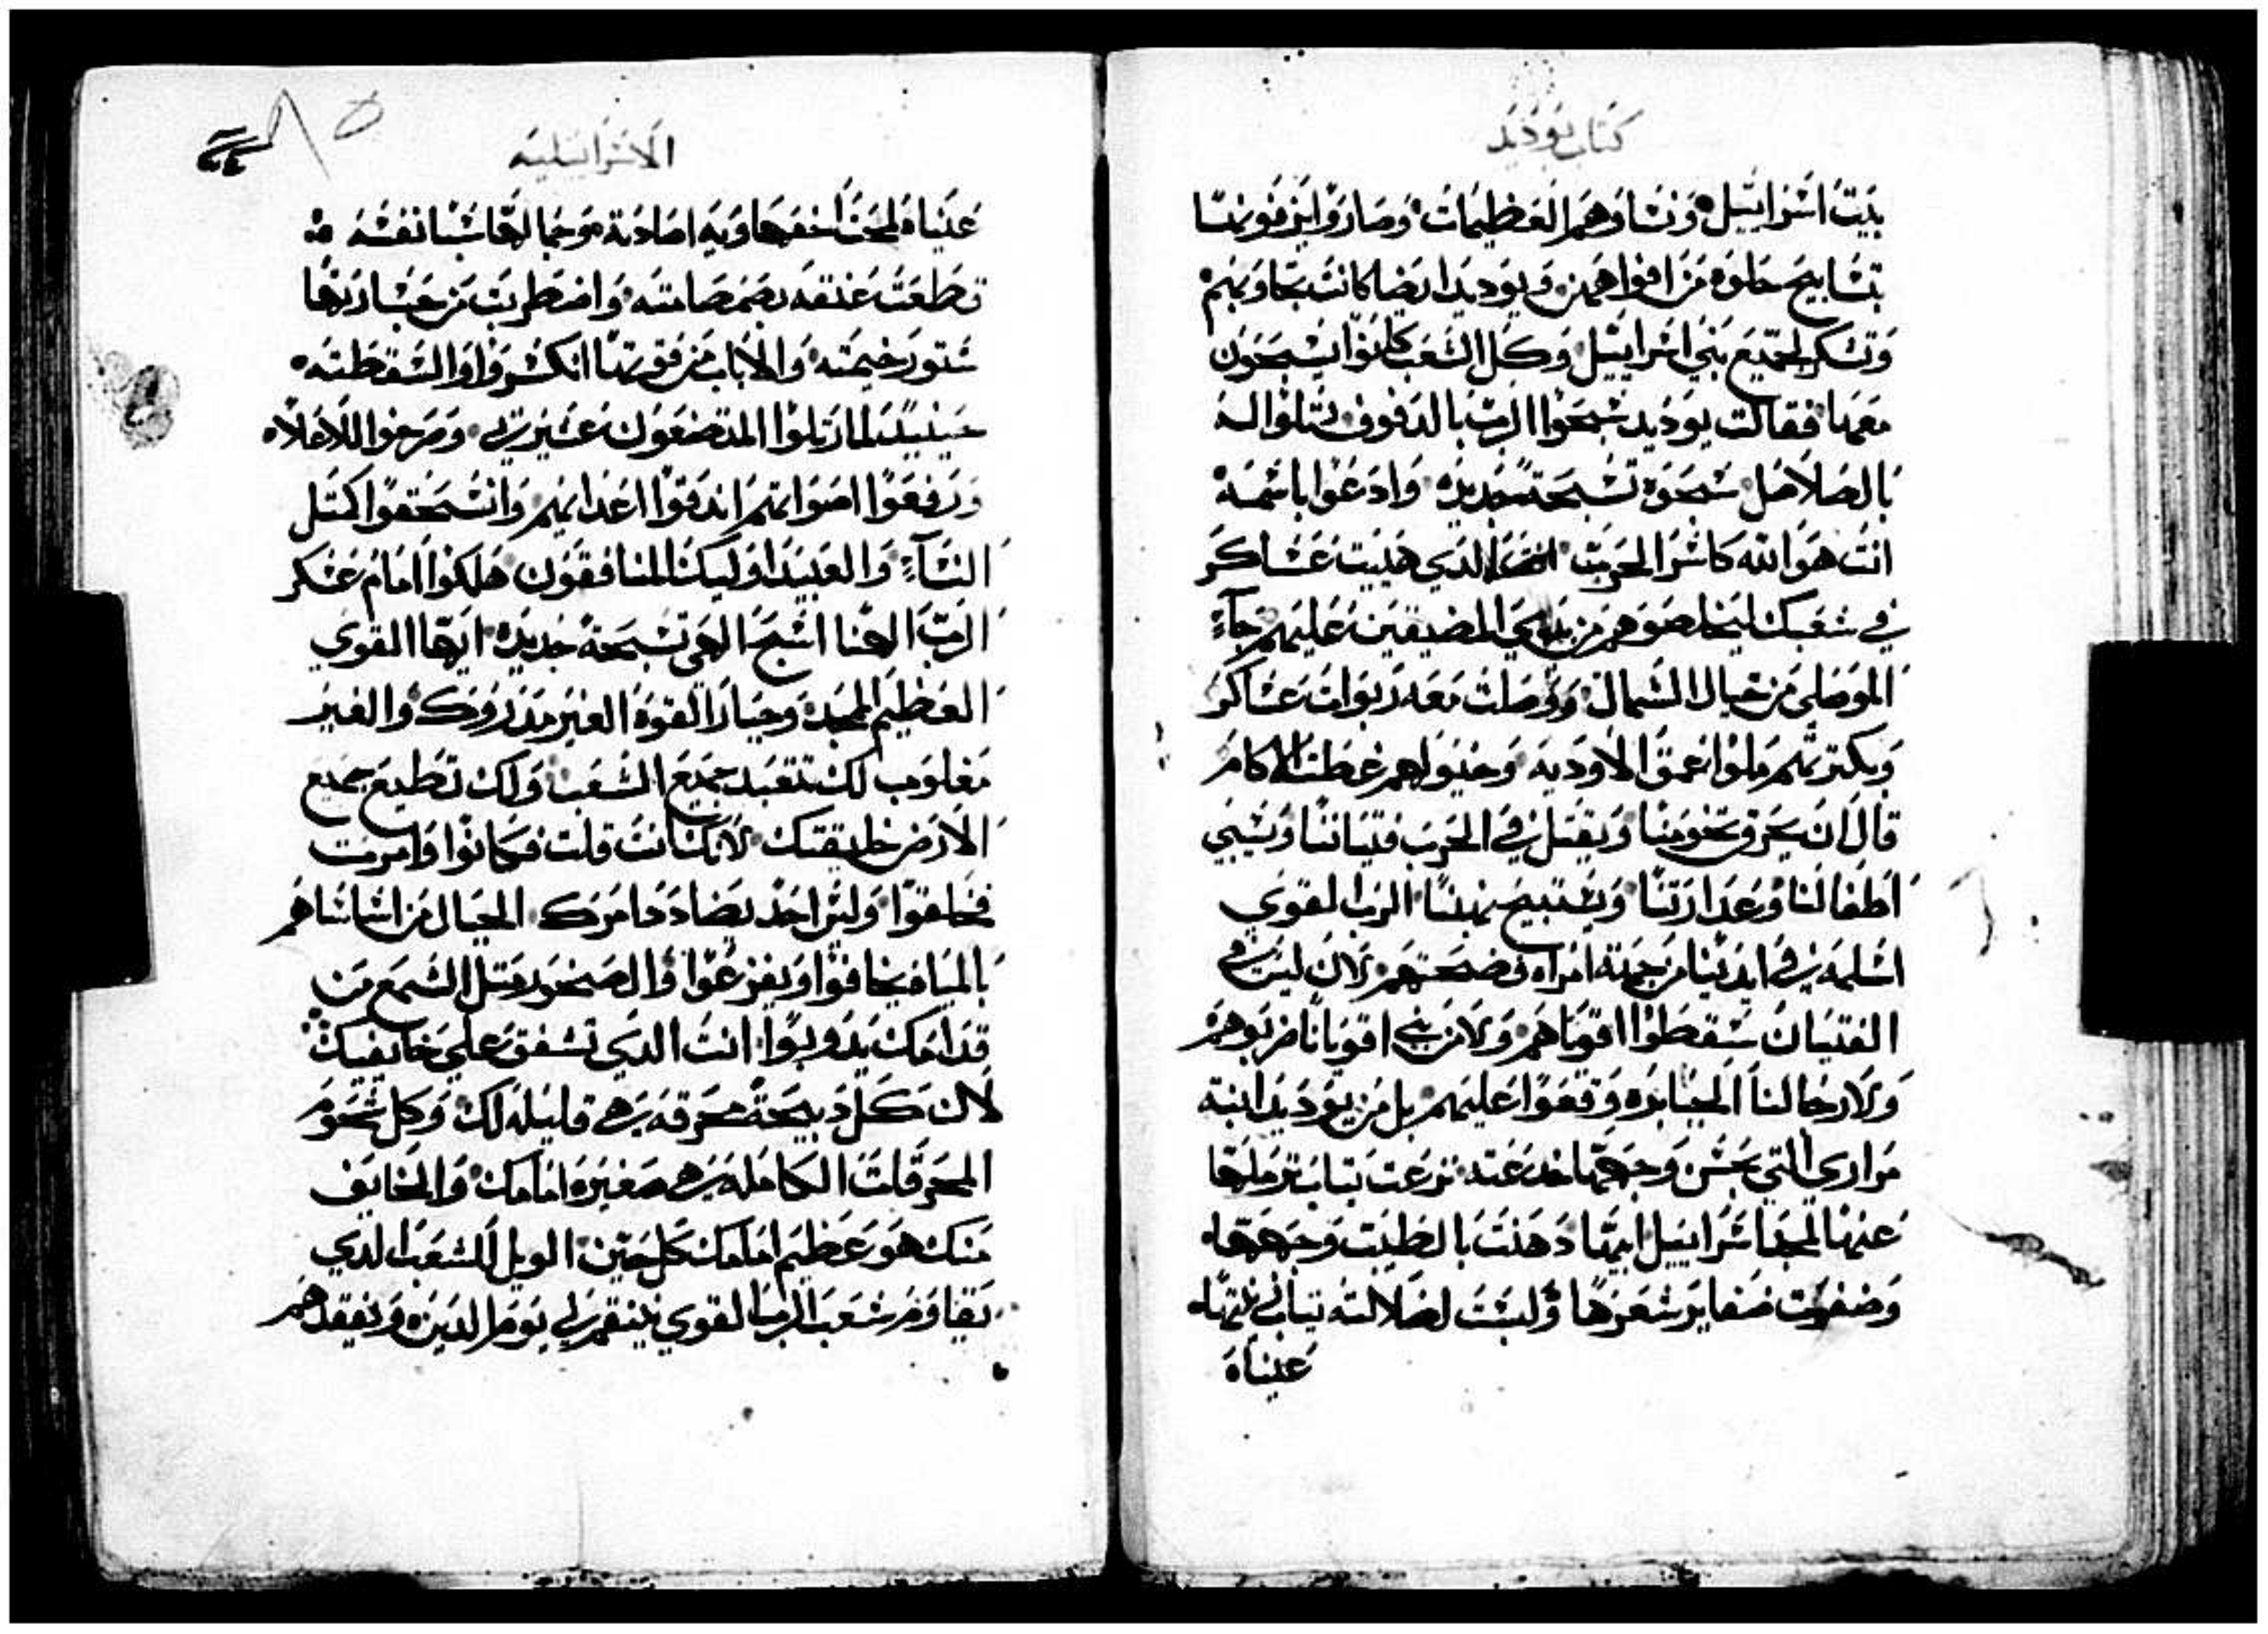 كتاب يوديد
بيت اسراييل ونساوهم العظيمات وصاروا يزفو بنسا
تسابيح حلوه من افواههن ويوديد ايضا كانت تجاوبهم
وتشكر لجميع بني اسراييل وكل الشعب كانوا يسبحون
معها فقالت يوديد سبحوا الرب بالدفوف رتلوا له
بالصلاصل سبحوه تسبحة جديده وادعوا باسمه
انت هو الله كاسر الحرب الذي هييت عساكر
في شعبك ليخلصوهم من يدي المضيقين عليهم جاء
الموصلي من جبال الشمال ووصلت معه ربوات عساكر
وبكترتهم ملوا عمق الاوديه وخيولهم غطت الاكام
قال ان يحرق تخومنا ويقتل في الحرب فتياننا ويسبي
اطفالنا وعدارتنا ويستبيح نهبنا الرب القوي
اسلمه في ايدينا من جهة امراه فضحتهم لان ليس
الفتيان سقطوا اقوياهم ولا من بني اقويانا ضربوهم
ولا رجالنا الجبابره وقعوا عليهم بل من يوديد ابنة
مراري التي بحسن وجهها خدعته نزعت تياب ترملها
عنها لمجد اسراييل ايضا دهنت بالطيب وجهها
وضفرت ضفاير شعرها ولبست لضلالته تياب
عيناه
الاسراييليه
عيناه لحسن خفها وبه اصادته وجمالها سبا نفسه
قطعت عنقه بصمصامته واضطربت من جسارتها
ستور خيمته والاباب من قوتها انكسروا والسقطته
حينيد لما رتلوا المتضعون عشيرتي وصرخوا للاعلاه
ورفعوا اصواتهم اندقوا اعدايهم وانسحقوا كتل
النساء والعبيد اوليك المنافقون هلكوا امام عسكر
الرب الهنا اسبح الهي تسبحة جديده ايها القوي
العظيم المجيد وجبار القوه الغير مدروك والغير
مغلوب لك تتعبد جميع الشعب ولك تطيع جميع
الارض خليقتك لانك انت قلت فكانوا وامرت
فخلقوا وليس احد يضادد امرك الجبال من اساساهم
بالمياه يخافوا ويفزعوا والصخور متل الشمع من
قدامك يدوبوا انت الدي تشفق علي خايفيك
لان كل دبيحة محرقه هي قليله لك وكل شحوم
المحرقات الكامله هي صغيره امامك والخايف
منك هو عظيم امامك كل حين الويل للشعب الدي
يقاوم شعب الرب القوي ينتقم لي يوم الدين ويفقدهم